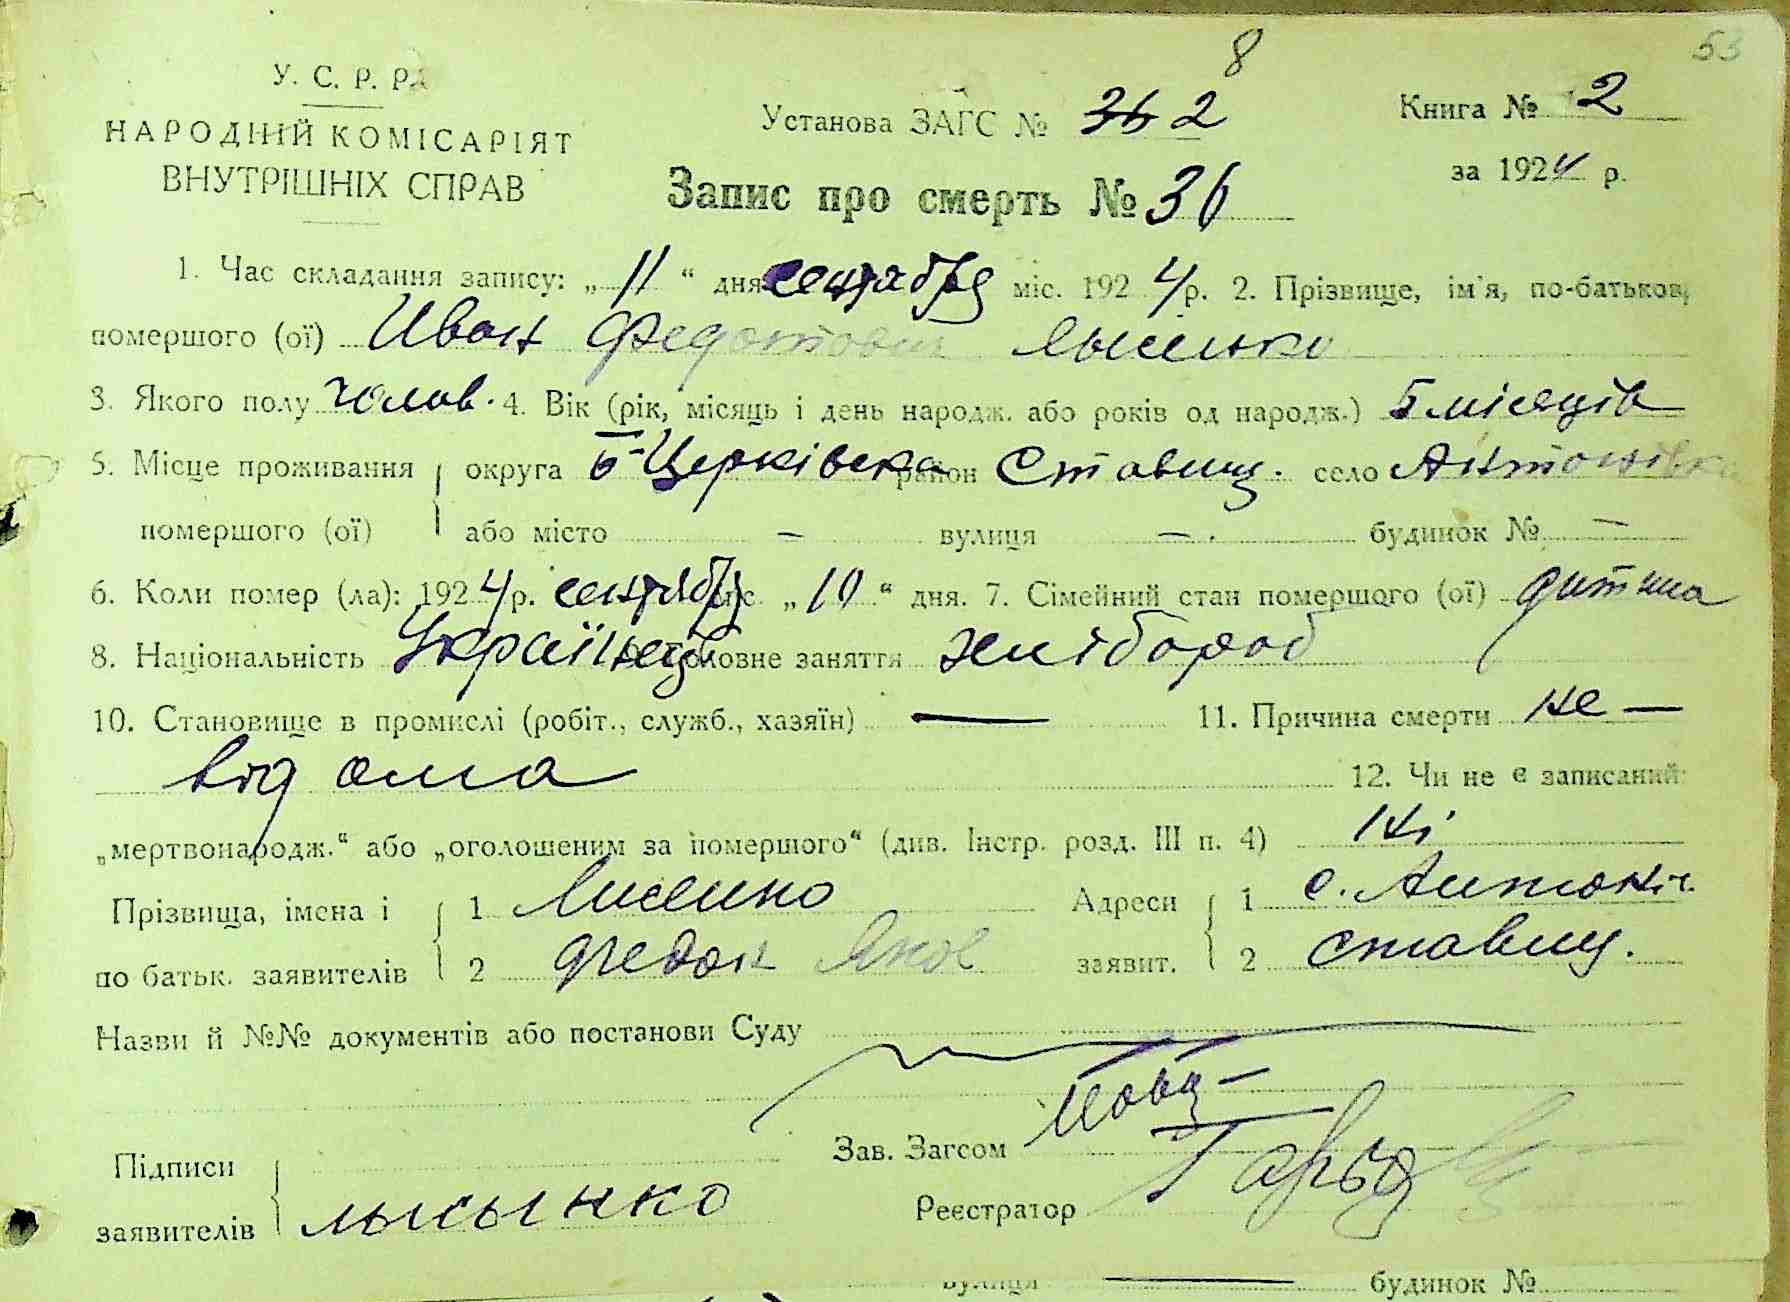 53
У. С. Р. Р.
НАРОДНІЙ КОМІСАРІЯТ
ВНУТРІШНІХ СПРАВ
8
Установа ЗАГС № 36 2
Книга № 2
за 1924 р.
Запис про смерть № 36
1. Час складання запису: „ 11 “ дня сентября міс. 1924 р. 2. Прізвище, ім'я, по-батькові
помершого (ої) Иван Федотович Лысенко
3. Якого полу чолов. 4. Вік (рік, місяць і день народж. або років од народж.) 5 місяців
5. Місце проживання округа Б-Церківська район Ставищ. село Антонівка
помершого (ої) або місто – вулиця – . будинок № –
6. Коли помер (ла): 1924 р. сентября міс. „ 10 “ дня. 7. Сімейний стан помершого (ої) дитина
8. Національність Українец Головне заняття хлібороб
10. Становище в промислі (робіт., служб., хазяїн) — 11. Причина смерти не –
відома 12. Чи не є записаний
„мертвонародж.“ або „оголошеним за помершого“ (див. Інстр. розд. III п. 4) Ні
Прізвища, імена і 1 Лисенко Адреси 1 с. Антонів.
по батьк. заявителів 2 Яков заявит. 2 Ставищ.
Назви й №№ документів або постанови Суду
Зав. Загсом
Підписи
заявителів лысынко Реєстратор
вулиця — будинок №